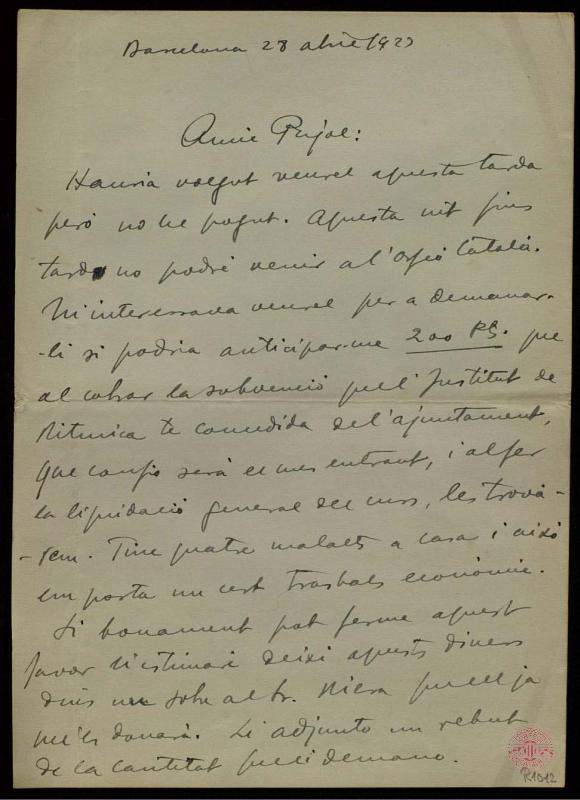 Barcelona 28 abril 1923
Amic Pujol:
Hauria volgut veurel aquesta tarda
però no he pogut. Aquesta nit fins
tard no podré venir a l'Orfeó Català.
M'interessava veurel per a demanar-
-li si podria anticipar-me 200 Pts. que
al cobrar la subvenció que l'Institut de
Ritmica te concedida de l'ajuntament,
que confio será el mes entrant, i al fer
la liquidació general del curs, les trova-
-rem. Tinc quatre malalts a casa i aixó
em porta un cert trasbals econòmic.
Si bonament pot ferme aquest
favor li estimaré deixi aquests diners
dins un sobre al Sr. Miera que ell ja
me'ls donará. Li adjunto un rebut
de la cantitat que li demano.
R1012